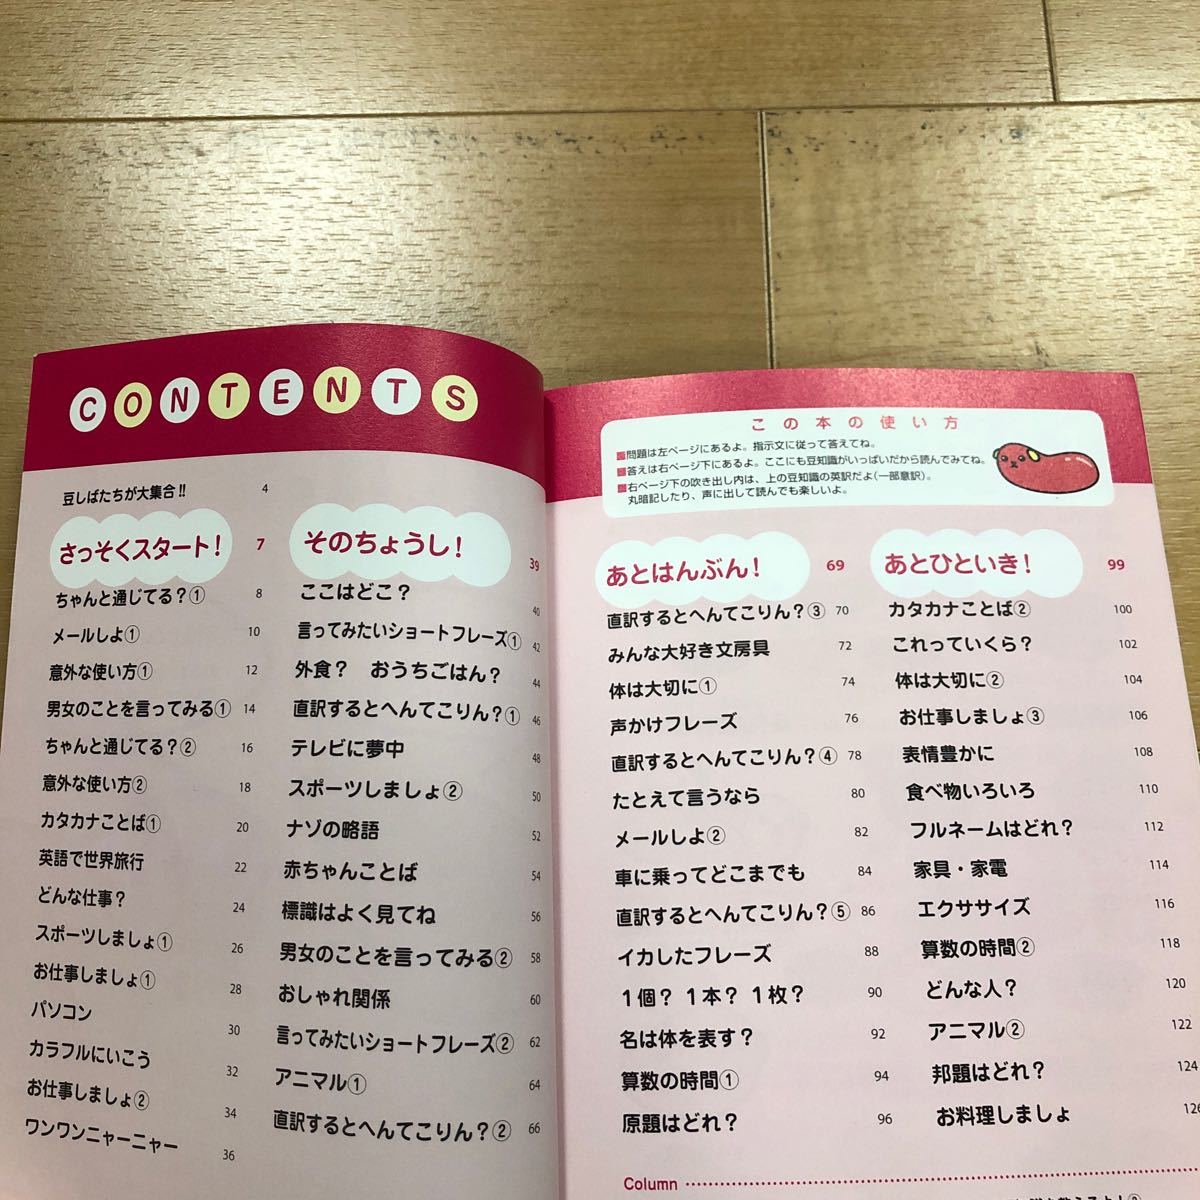 CONTENTS
豆しばたちが大集合!! 4
さっそくスタート! 7
ちゃんと通じてる?① 8
メールしよ① 10
意外な使い方① 12
男女のことを言ってみる① 14
ちゃんと通じてる?② 16
意外な使い方② 18
カタカナことば① 20
英語で世界旅行 22
どんな仕事? 24
スポーツしましょ① 26
お仕事しましょ① 28
パソコン 30
カラフルにいこう 32
お仕事しましょ② 34
ワンワンニャーニャー 36
そのちょうし! 39
ここはどこ? 40
言ってみたいショートフレーズ① 42
外食? おうちごはん? 44
直訳するとへんてこりん?① 46
テレビに夢中 48
スポーツしましょ② 50
ナゾの略語 52
赤ちゃんことば 54
標識はよく見てね 56
男女のことを言ってみる② 58
おしゃれ関係 60
言ってみたいショートフレーズ② 62
アニマル① 64
直訳するとへんてこりん?② 66
この本の使い方
■問題は左ページにあるよ。指示文に従って答えてね。
■答えは右ページ下にあるよ。ここにも豆知識がいっぱいだから読んでみてね。
■右ページ下の吹き出し内は、上の豆知識の英訳だよ(一部意訳)。
丸暗記したり、声に出して読んでも楽しいよ。
あとはんぶん! 69
直訳するとへんてこりん?③ 70
みんな大好き文房具 72
体は大切に① 74
声かけフレーズ 76
直訳するとへんてこりん?④ 78
たとえて言うなら 80
メールしよ② 82
車に乗ってどこまでも 84
直訳するとへんてこりん?⑤ 86
イカしたフレーズ 88
1個? 1本? 1枚? 90
名は体を表す? 92
算数の時間① 94
原題はどれ? 96
あとひといき! 99
カタカナことば② 100
これっていくら? 102
体は大切に② 104
お仕事しましょ③ 106
表情豊かに 108
食べ物いろいろ 110
フルネームはどれ? 112
家具・家電 114
エクササイズ 116
算数の時間② 118
どんな人? 120
アニマル② 122
邦題はどれ? 124
お料理しましょ 126
Column